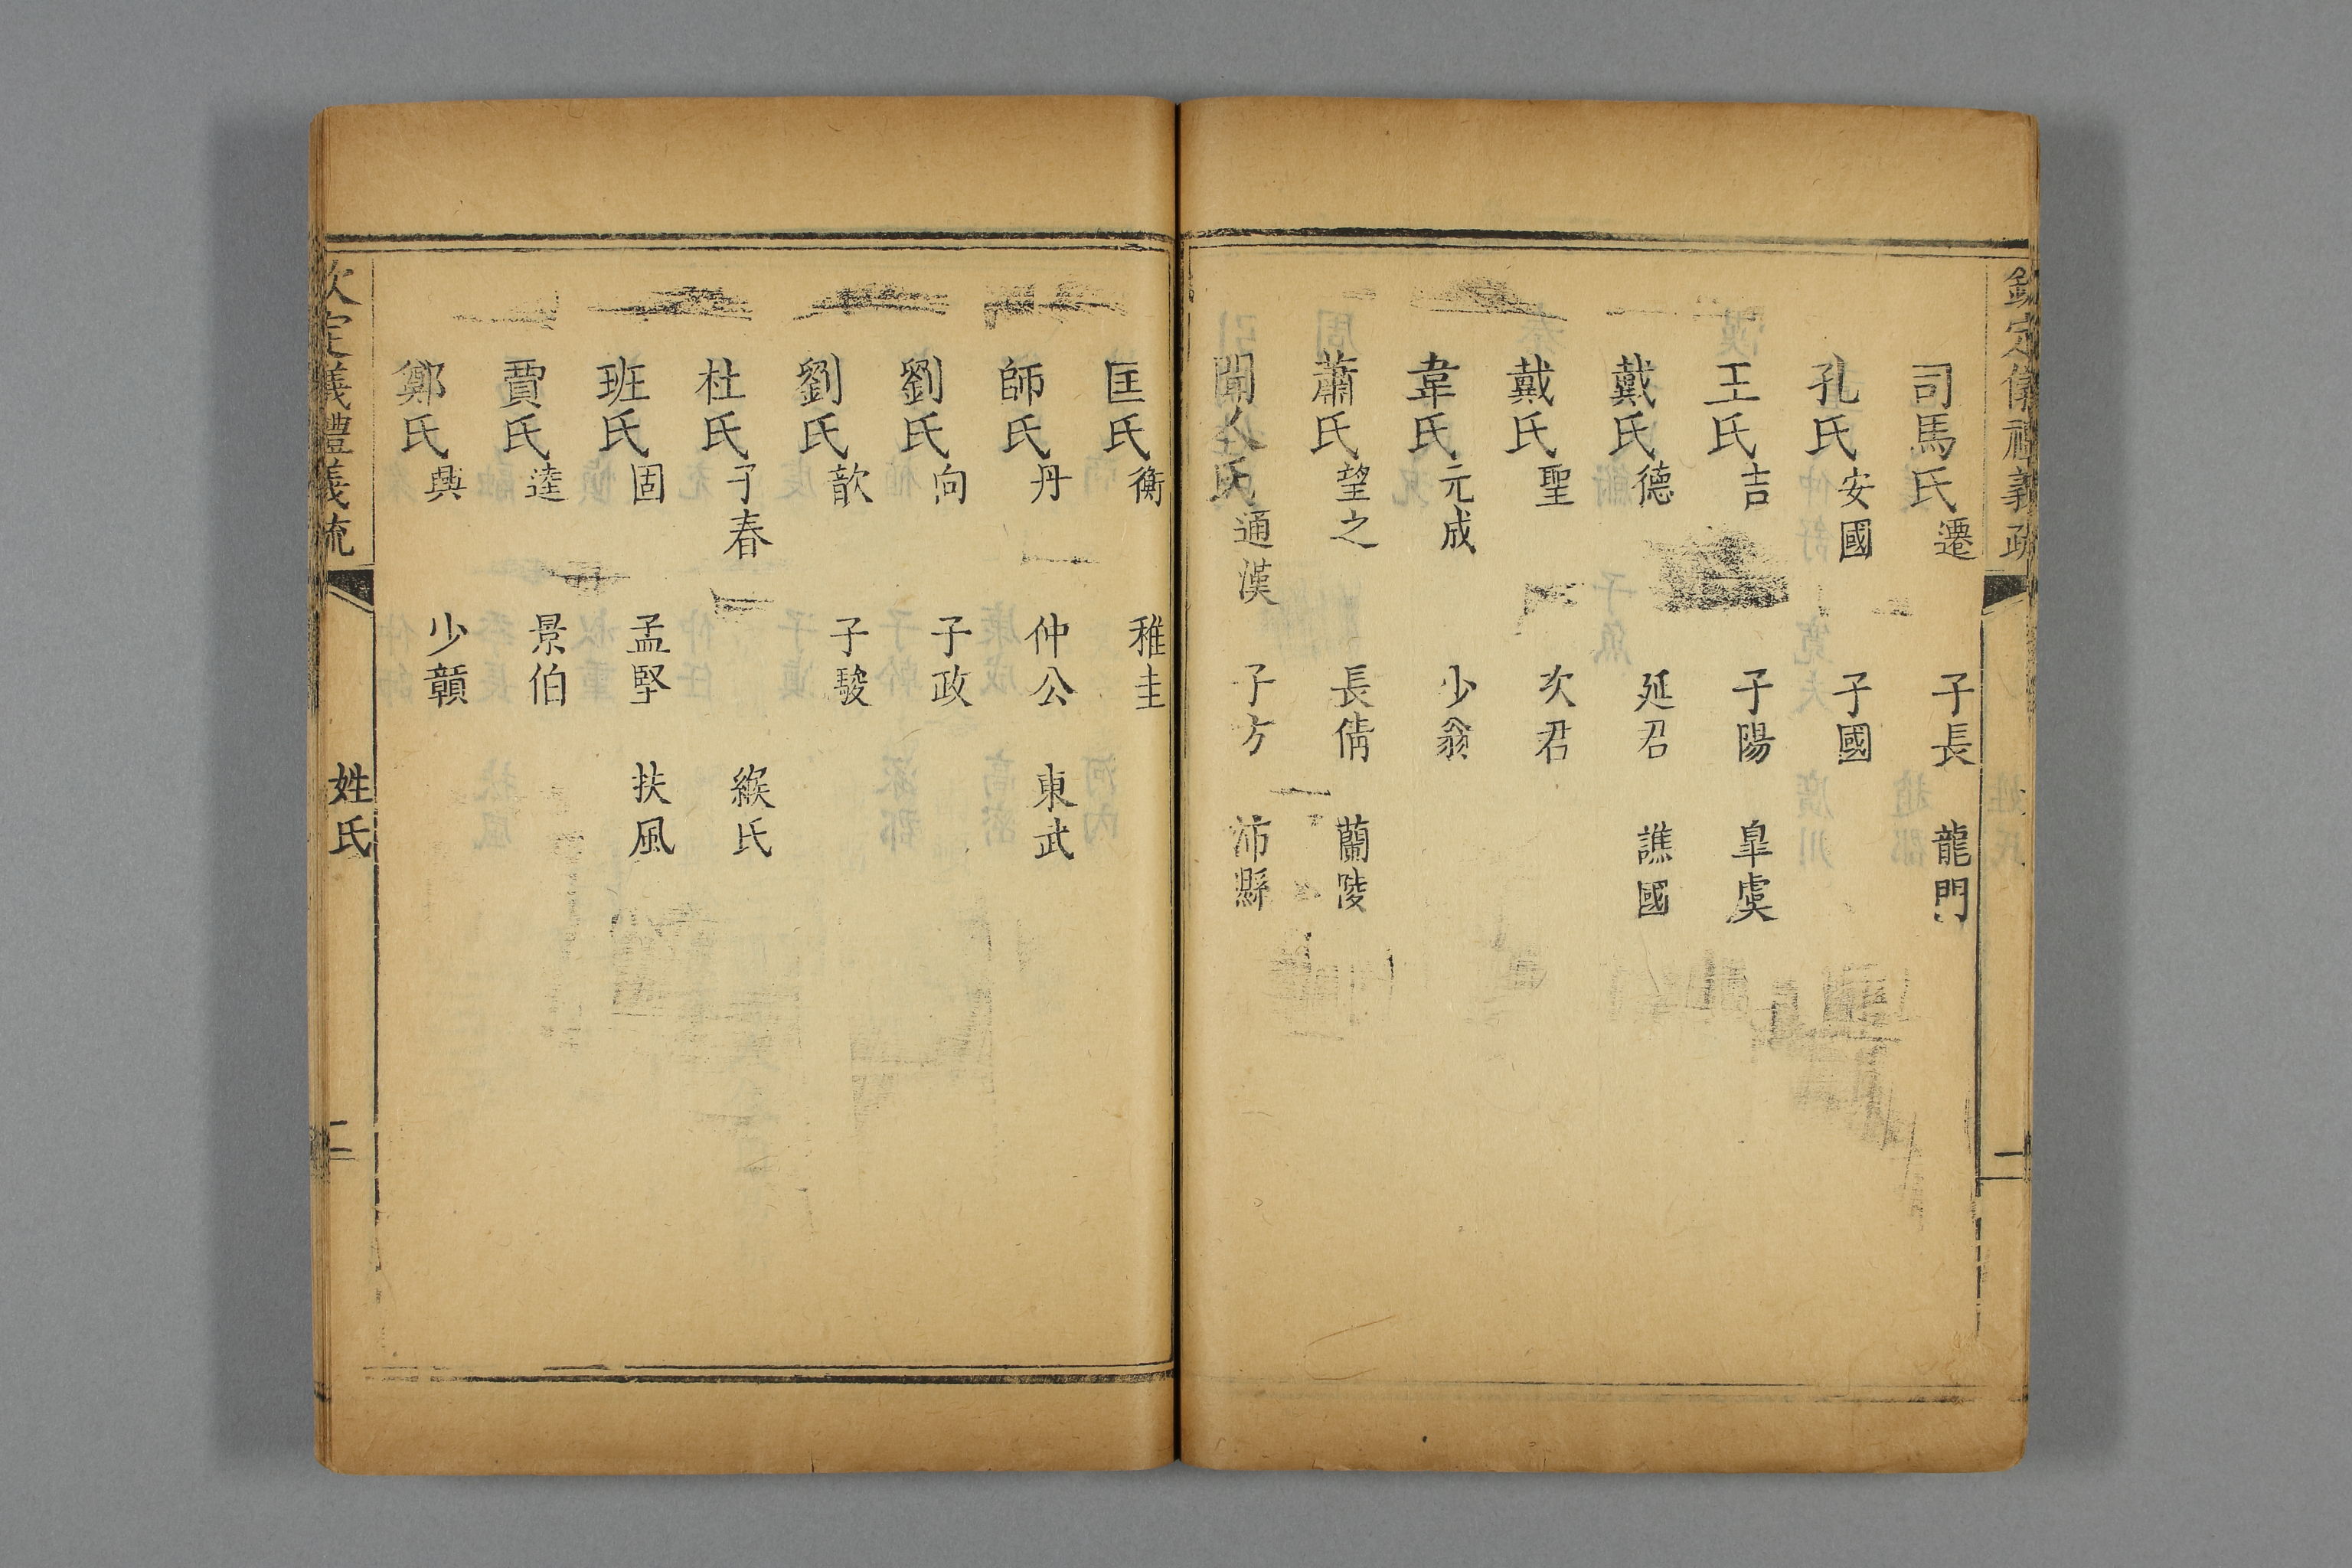 欽定儀禮義疏
一
司馬氏遷 子長 龍門
孔氏安國 子國
王氏吉 子陽 皐虞
戴氏德 延君 譙國
戴氏聖 次君
韋氏元成 少翁
蕭氏望之 長倩 蘭陵
聞人氏通漢 子方 沛縣
匡氏衡 稚圭
師氏丹 仲公 東武
劉氏向 子政
劉氏歆 子駿
杜氏子春 緱氏
班氏固 孟堅 扶風
賈氏逵 景伯
鄭氏興 少贛
欽定儀禮義疏 姓氏 二